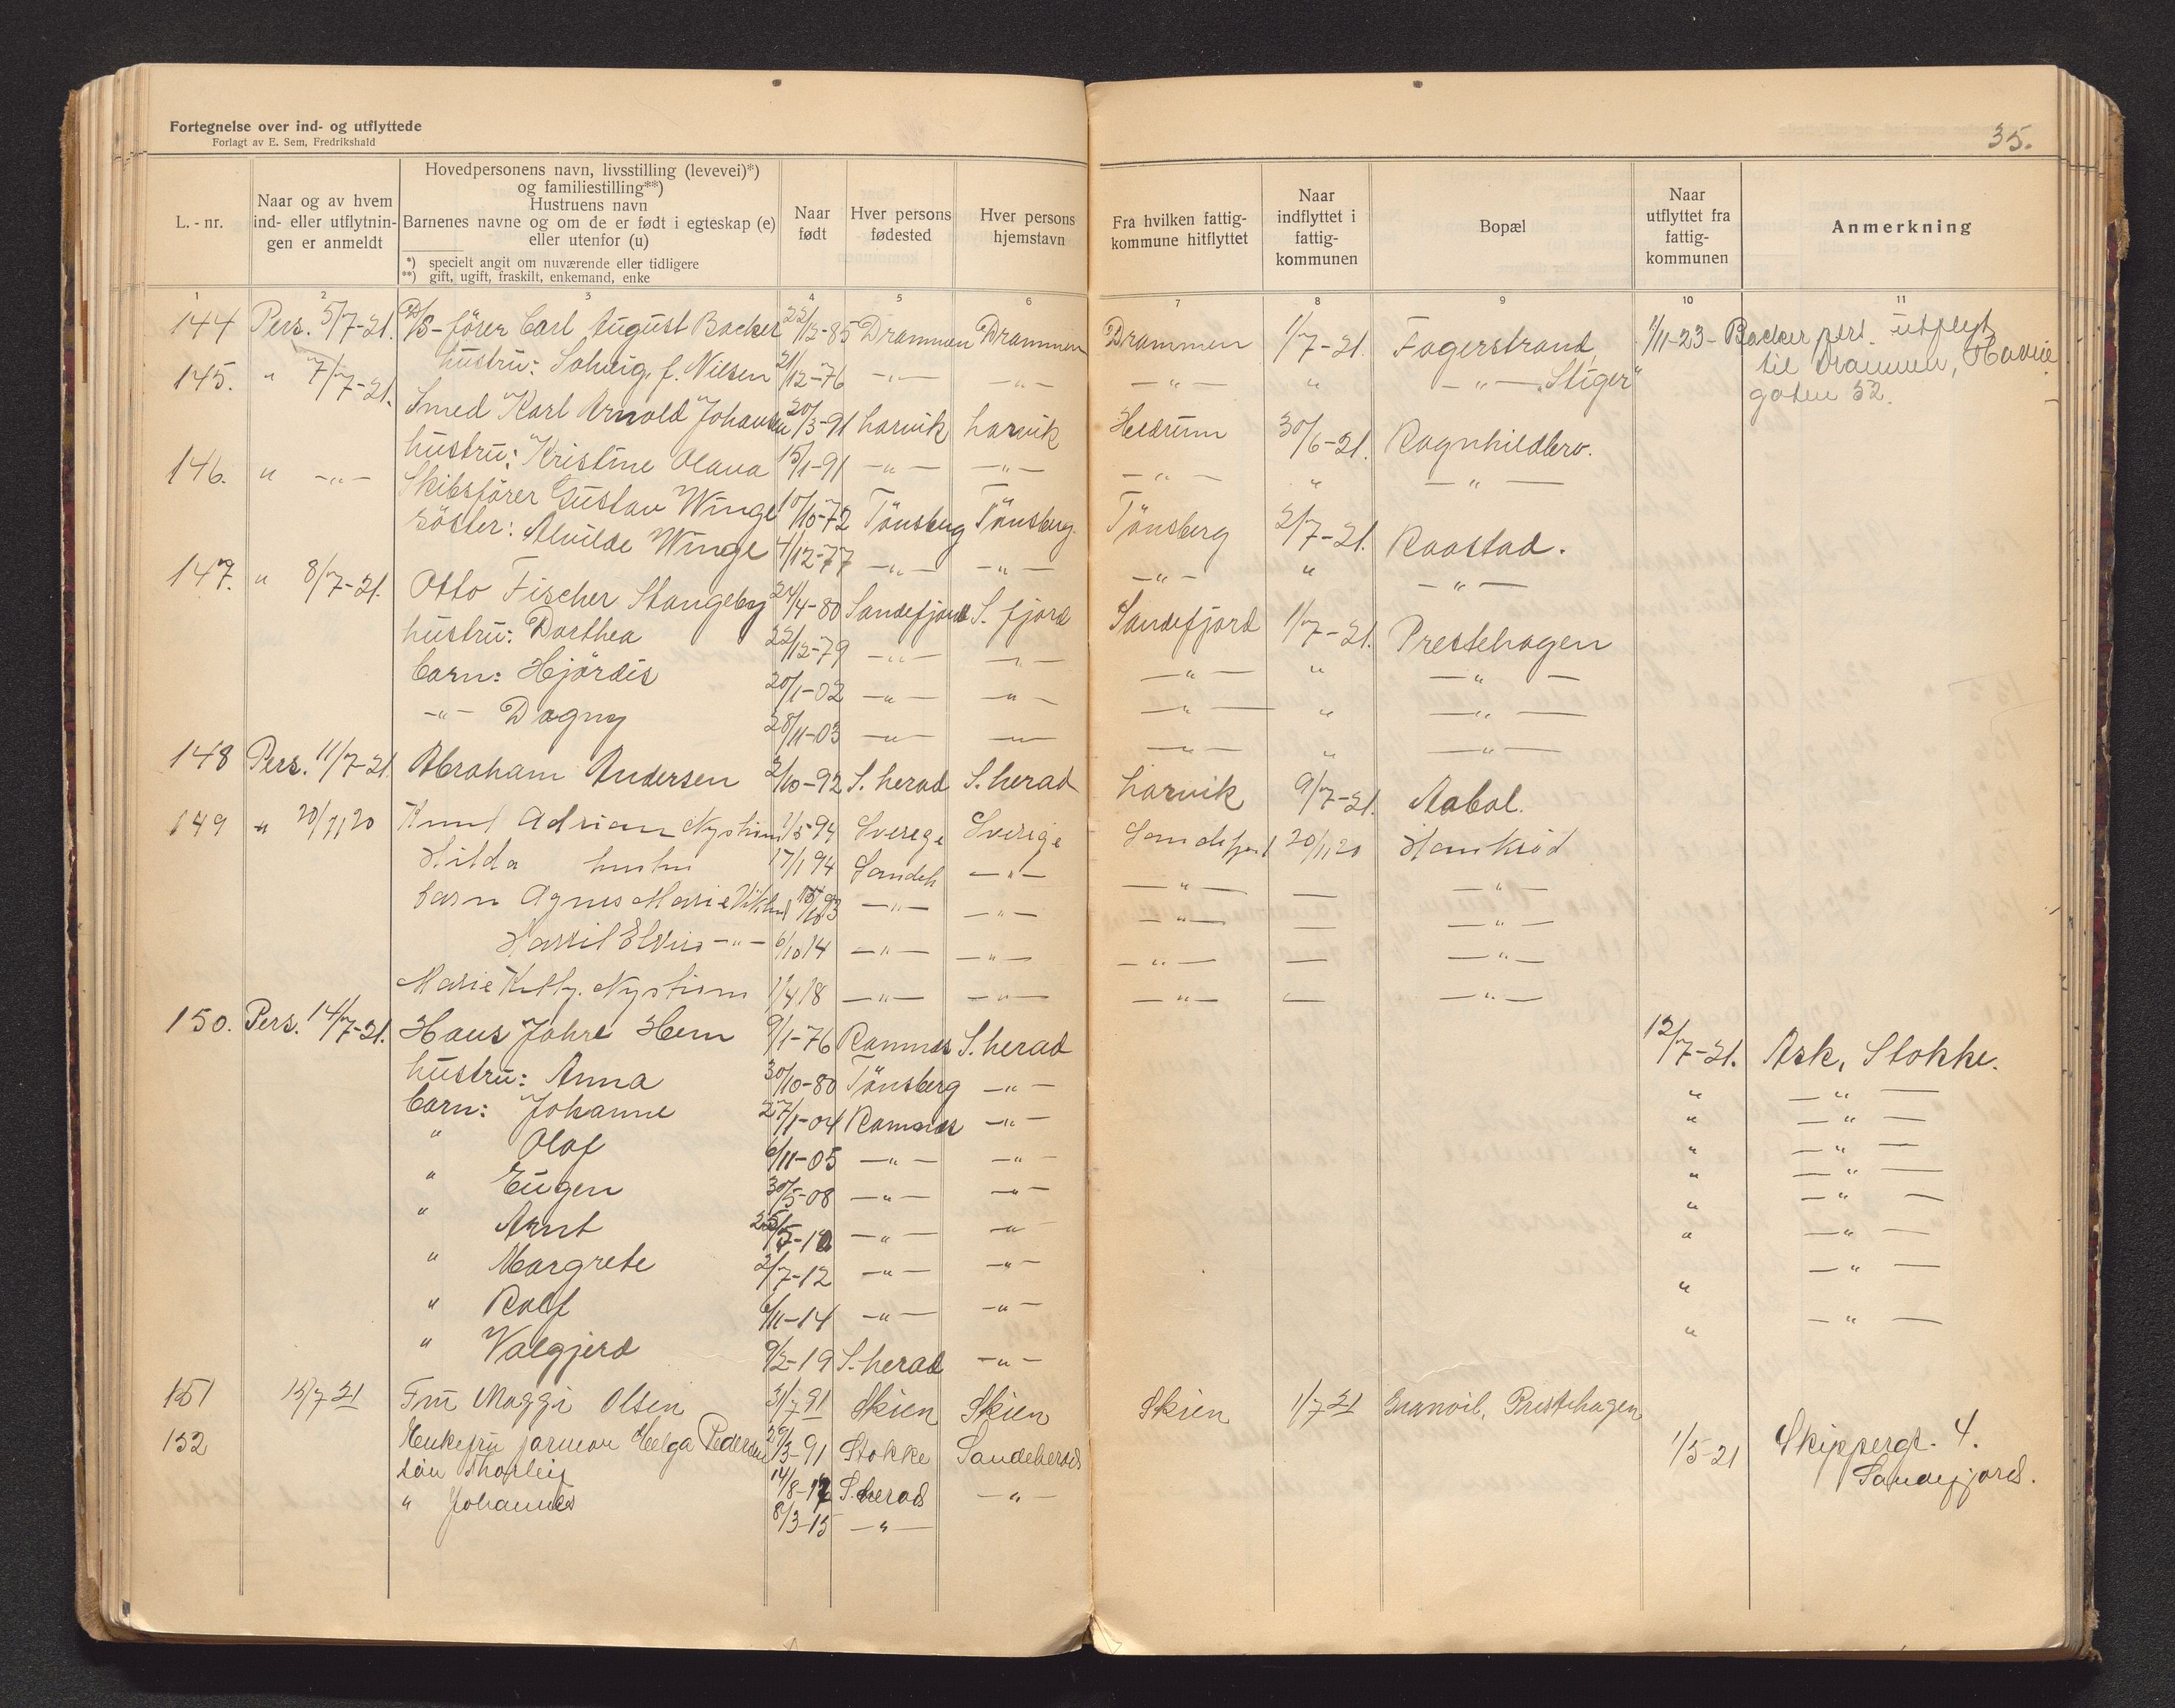 Fortegnelse over ind- og utflyttede
Forlagt av E. Sem, Fredrikshald
35.
L. - nr.
Naar og av hvem ind- eller utflytningen er anmeldt
Hovedpersonens navn, livsstilling (levevei)*)
og familiestilling**)
Hustruens navn
Barnenes navne og om de er født i egteskap (e)
eller utenfor (u)
*) specielt angit om nuværende eller tidligere
**) gift, ugift, fraskilt, enkemand, enke
Naar født
Hver persons fødested
Hver persons hjemstavn
Fra hvilken fattigkommune hitflyttet
Naar indflyttet i fattigkommunen
Bopæl
Naar utflyttet fra fattigkommunen
Anmerkning
1 2 3 4 5 6 7 8 9 10 11
144 Pers. 5/7-21. D/S-fører Carl August Backer 22/12-85 Drammen Drammen Drammen 1/7-21. Fagerstrand, 1/11-23- Backer pers. utflyt
hustru: Solveig, f. Nilsen 21/12-76 -"- -"- -"- " -"- "Stiger" til Drammen, Havne
gaten 52.
145. " 7/7-21. Smed Karl Arnold Johansen 20/3-91 Larvik Larvik Hedrum 30/6-21. Ragnhildbro.
hustru: Kristine Olava 15/1-91 -"- -"- -"- " -"-
146. " -"- Skibsfører Gustav Winge 10/10-72 Tönsberg Tönsberg. Tönsberg 2/7-21. Raastad.
söster: Alvilde Winge 4/12-77 -"- -"- -"- " -"-
147. " 8/7-21. Otto Fischer Stangeby 24/4-80 Sandefjord S. fjord Sandefjord 1/7-21. Prestehagen
hustru: Dorthea 22/12-79 -"- -"- -"- " -"-
barn: Hjördis 20/1-02 -"- -"- -"- " -"-
-"- Dagny 28/11-03 -"- -"- -"- " -"-
148 Pers. 11/7-21. Abraham Andersen 2/10-92 S. herad S. herad Larvik 9/7-21. Aabol.
149 " 20/11 20 Knut Adrian Nystrøm 1/5-94 Sverege Sverige Sandefjord 20/11 20 Hauksrød
Hilda hustru 17/1 94 Sandeh -"- -"- — -"-
barn Agnes Marie -"- -"- -"- — -"-
-"- 6/10 14 -"- -"- -"- — -"-
Marie Nystrøm 1/4 18 -"- -"- -"- — -"-
150. Pers. 14/7-21. Hans Jahre Hem 9/1-76 Ramnes S. herad 12/7-21. Ask, Stokke.
hustru: Anna 30/10-80 Tönsberg -"- " -"-
barn: Johanne 27/1-04 Ramnes -"- " -"-
" Olaf 6/11-05 -"- -"- " -"-
" Eugen 30/5-08 -"- -"- " -"-
" Arnt 25/5-10 -"- -"- " -"-
" Margrete 2/7-12 -"- -"- " -"-
" Rolf 6/11-14 -"- -"- " -"-
" Valgjerd 9/2-19 S. herad -"- " -"-
151 15/7 21 Fru Maggi Olsen 31/7 91 Skien Skien Skien 1/7 21 Granvil, Prestehagen
152 Enkefru Helga Pedersen 29/3-91 Stokke Sandeherad 1/5-21 Skippergt. 4.
sön Thorleif 14/8-12 S. herad -"- Sandefjord.
" Johannes 8/3-15 -"-